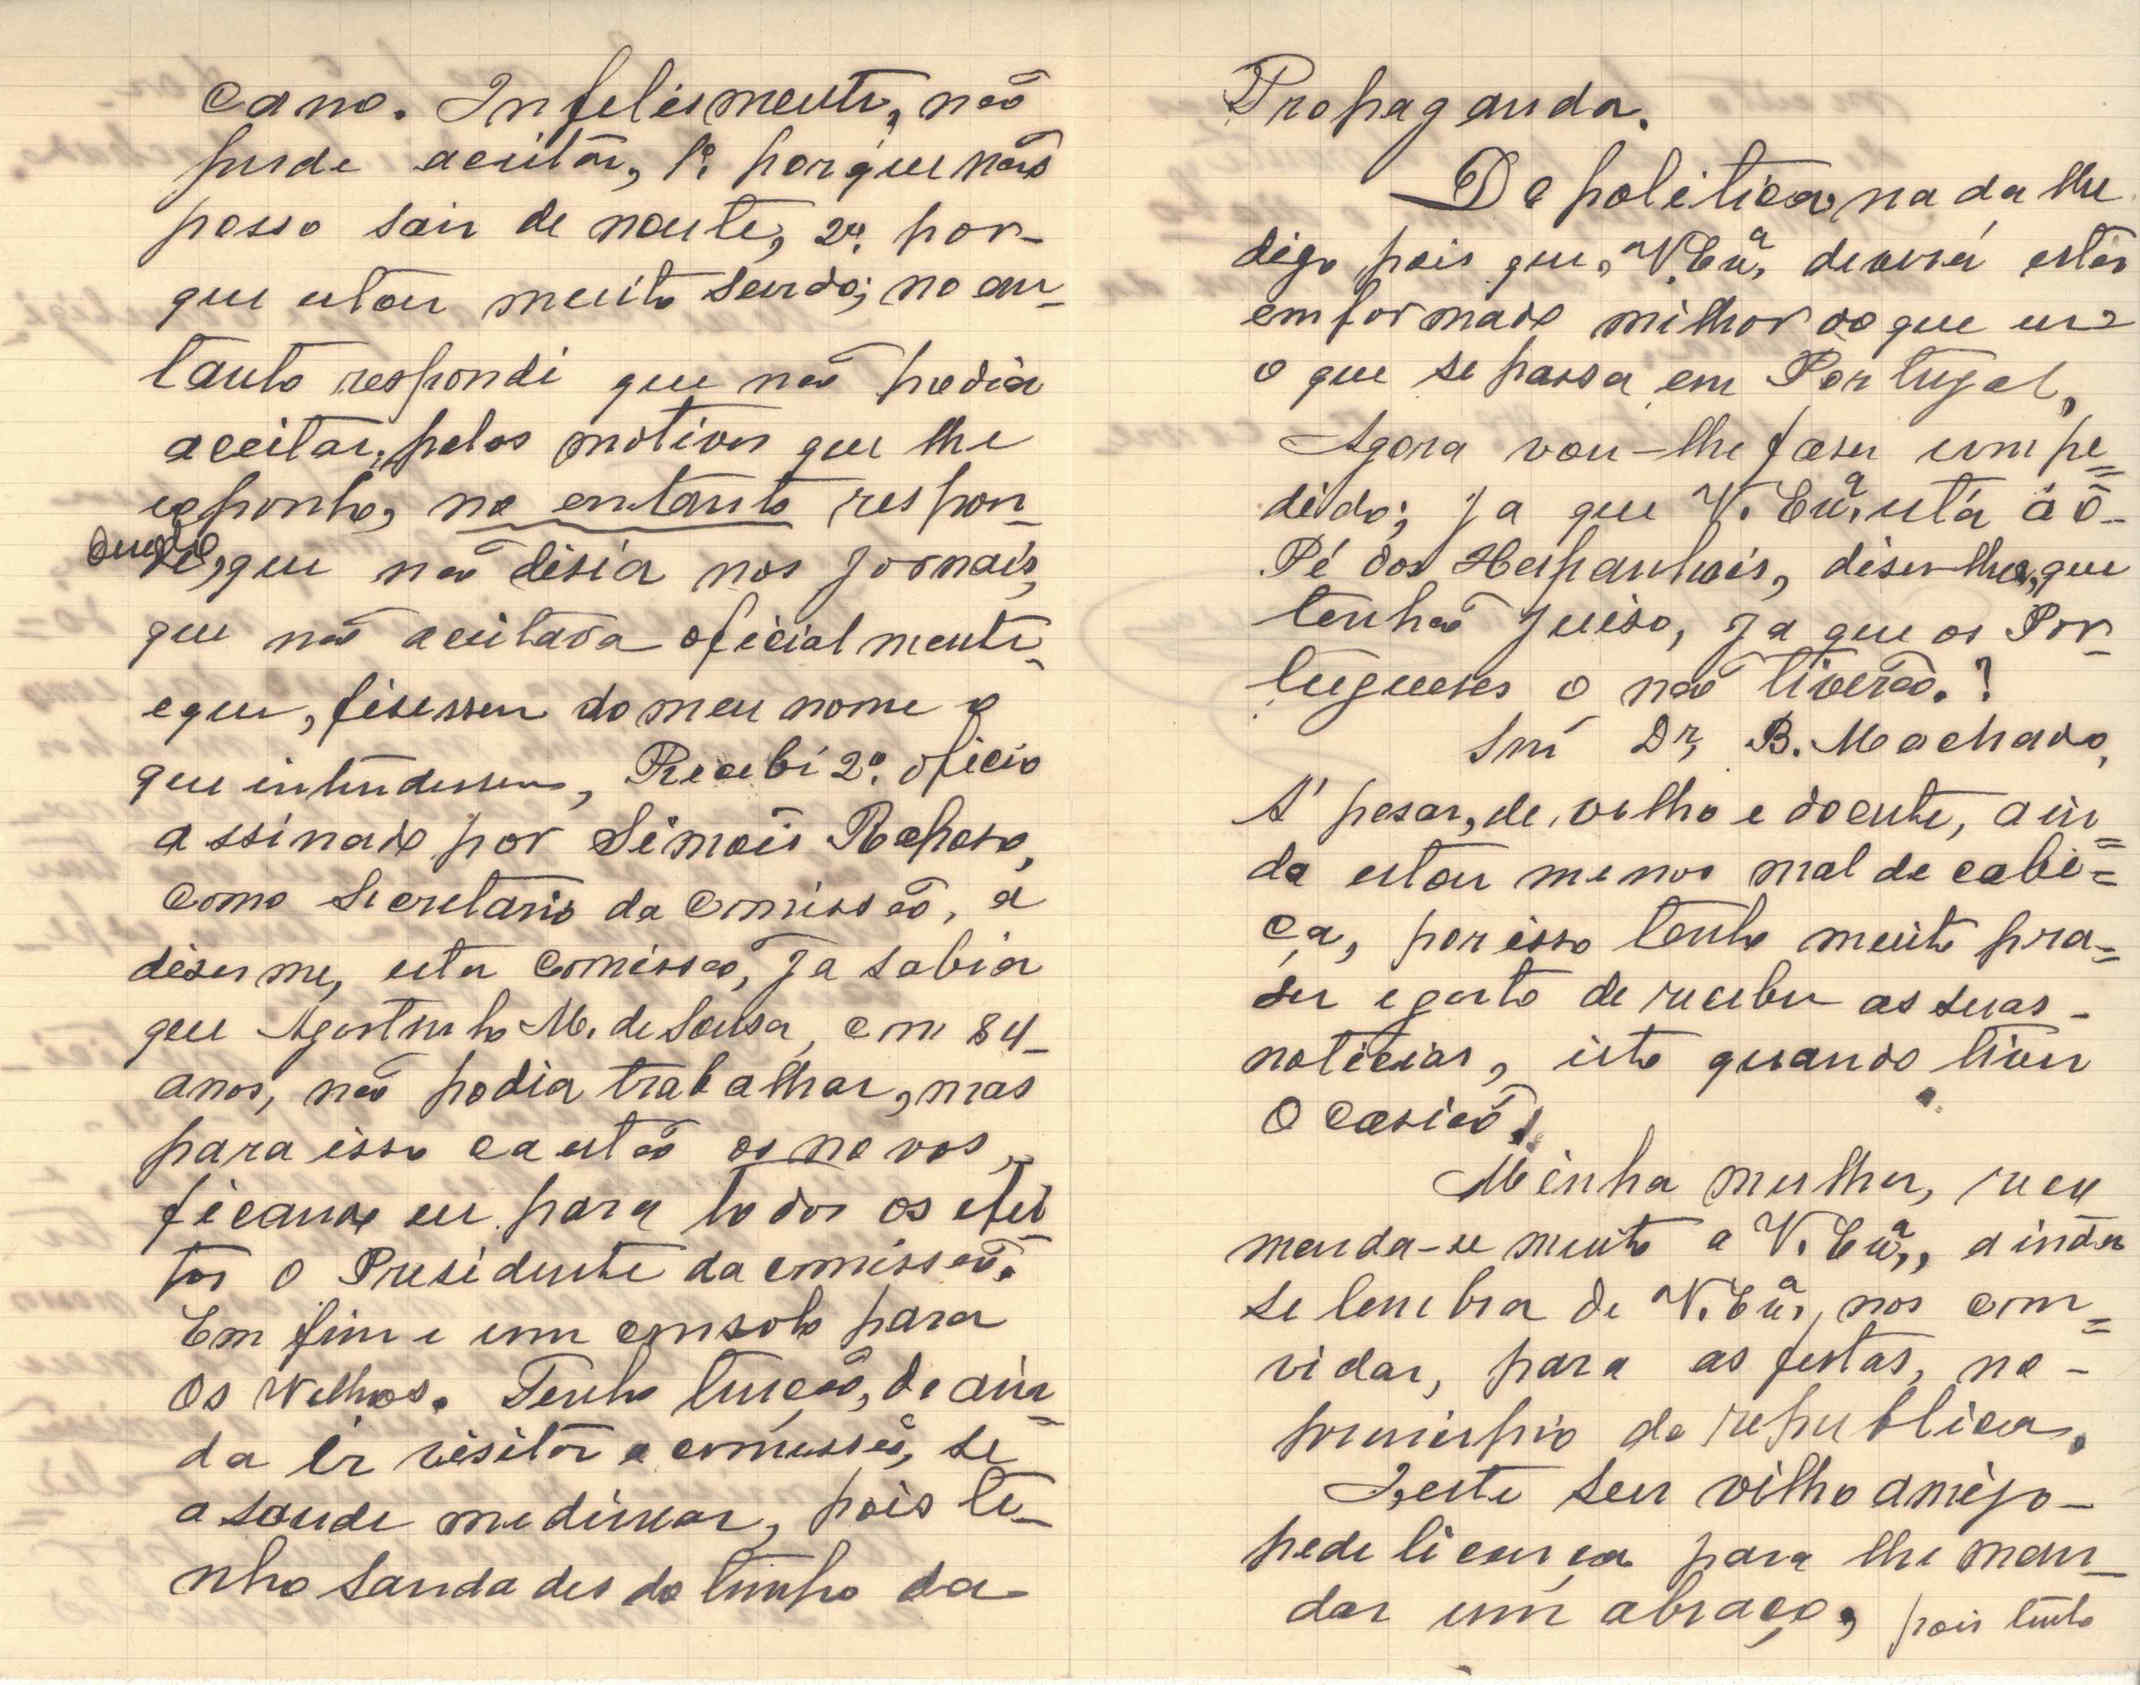 cano. Infelismente, não
pude aceitar, 1º. porque não
posso sair de noute, 2º. por-
que estou muito surdo; no en-
tanto respondi que não podia
aceitar, pelos motivos que lhe
exponho, no entanto respon-
di, que não disia nos jornais,
que não aceitava oficialmente
e que, fisessem do meu nome o
que intendessem, Recebi 2º. oficio
assinado por Simois Raposo,
como Secretario da Comissão, a
diserme, esta Comissão, ja sabia
que Agostinho M. de Sousa, com 84-
anos, não podia trabalhar, mas
para isso ca estão os novos,
ficando eu para todos os efei
tos o Presidente da comissão.
Em fim e um consolo para
os velhos. Tenho tenção, de ain
da ir visitar a comissão, se
a saude medeixar, pois te-
nho saudades do tempo da
Propaganda.
De politica, nada lhe
digo pois que, V. Exª. deverá estar
emformado milhor do que eu
o que se passa em Portugal,
Agora vou-lhe faser um pe=
dido; ja que V. Exª. está á ó-
Pé dos Hespanhois, diser-lhes, que
tenhão juiso, ja que os Por-
tugueses o não tiverão.!
Snr Dr, B. Machado,
A' pesar, de, velho e doente, ain=
da estou menos mal de cabe=
ça, por isso tenho muito pra=
ser e gosto de receber as suas-
noticias, isto quando tiver
ocasião.
Minha mulher, recu
menda-se muito a V. Exª,, ainda
se lembra de V. Exª., nos com=
vidar, para as festas, no-
primcipio da republica.
Ieste seu vilho amigo-
pede licença para lhe man-
dar um abraço, pois tenho